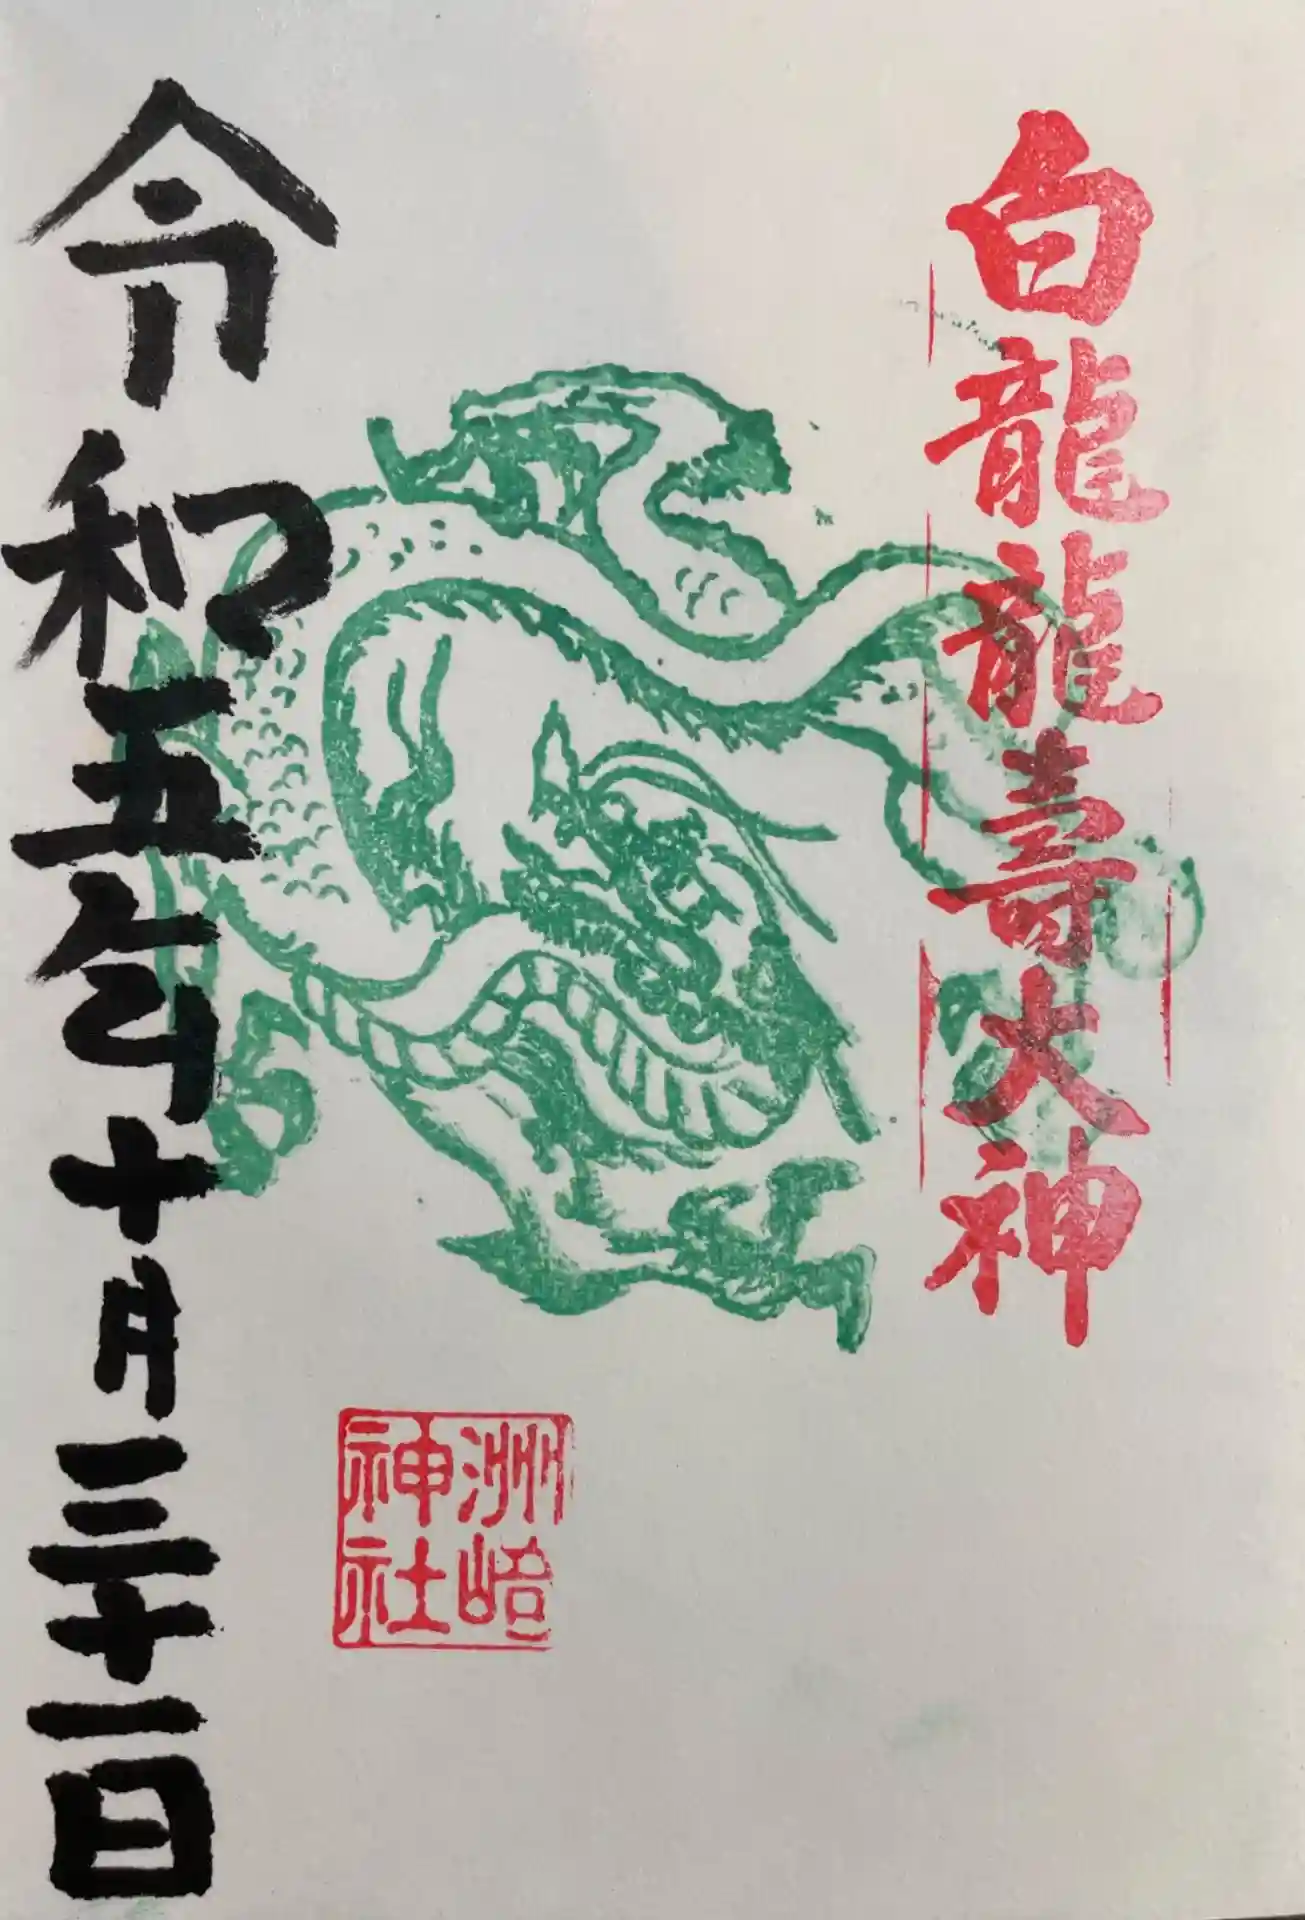 白龍龍壽大神
洲崎神社
令和五年十月三十一日